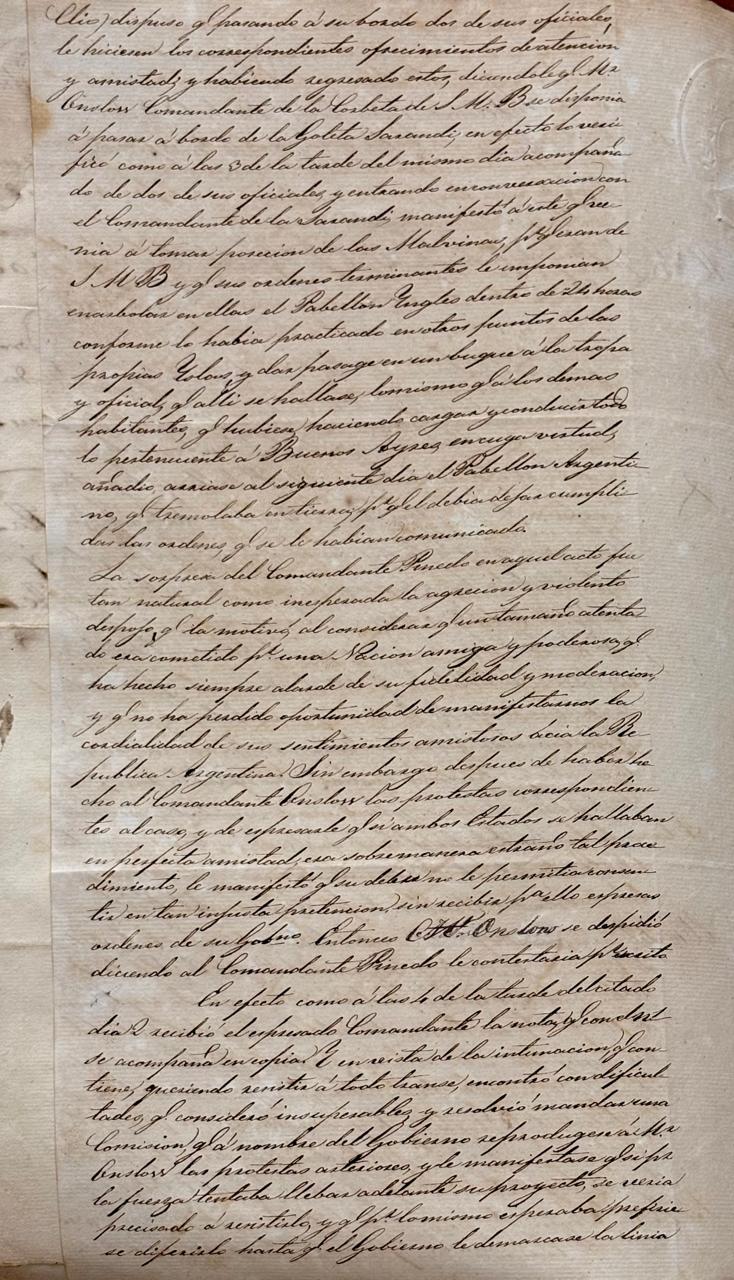 Clio) dispuso q.e pasando á su bordo dos de sus oficiales,
le hiciesen los correspondientes ofrecimientos de atencion
y amistad; y habiendo regresado estos, diciendole q.e Mr
Onslow Comandante de la Corbeta de S. M. B se disponia
á pasar á bordo de la Goleta Sarandí, en efecto lo veri
ficó como á las 3 de la tarde del mismo dia acompaña
do de dos de sus oficiales, y entrando en conversacion con
el Comandante de la Sarandi, manifestó á este q.e ve
nia á tomar posecion de las Malvinas, p.r q.e eran de
S M B y q.e sus ordenes terminantes le imponian
enarbolar en ellas el Pabellon Yngles dentro de 24 horas
conforme lo habia practicado en otros puntos de las
propias Yslas, y dar pasage en un buque á la tropa
y oficial, q.e alli se hallase, lo mismo q.e á los demas
habitantes, q.e hubiese, haciendo cargar y conducir todo
lo perteneciente á Buenos Ayres, en cuya virtud,
añadio, arriase al siguiente dia el Pabellon Argenti
no, q.e tremolaba en tierra, p.r q.e el debia dejar cumpli
das las ordenes, q.e se le habian comunicado.
La sorpresa del Comandante Pinedo en aquel acto fue
tan natural como inesperada la agrecion y violento
despojo, q.e la motivó, al considerar q.e un tamaño atenta
do era cometido p.r una Nacion amiga y poderosa, q.e
ha hecho siempre alarde de su fidelidad y moderacion,
y q.e no ha perdido oportunidad de manifestarnos la
cordialidad de sus sentimientos amistosos ácia la Re
publica Argentina. Sin embargo despues de haber he
cho al Comandante Onslow las protestas correspondien
tes al caso, y de espresarle q.e si ambos Estados se hallaban
en perfecta amistad, era sobremanera estraño tal proce
dimiento, le manifestó q.e su deber no le permitia consen
tir en tan injusta pretencion, sin recibir p.a ello espresas
ordenes de su Gobno. Entonces Mr. Onslow se despidió
diciendo al Comandante Pinedo le contestaria p.r escrito
En efecto como á las 4 de la tarde del citado
dia 2 recibió el espresado Comandante la nota, q.e con el n.1
se acompaña en copia. Y en vista de la intimacion, q.e con
tiene, queriendo resistir á todo transe, encontró con dificul
tades, q.e consideró insuperables, y resolvió mandar una
Comision, q.e á nombre del Gobierno reprodugese á Mr
Onslow las protestas anteriores, y le manifestase q.e si p.r
la fuerza tentaba llebar adelante su proyecto, se veria
precisado á resistirlo, y q.e p.r lo mismo esperaba prefirie
se diferirlo hasta q.e el Gobierno le demarcase la linia